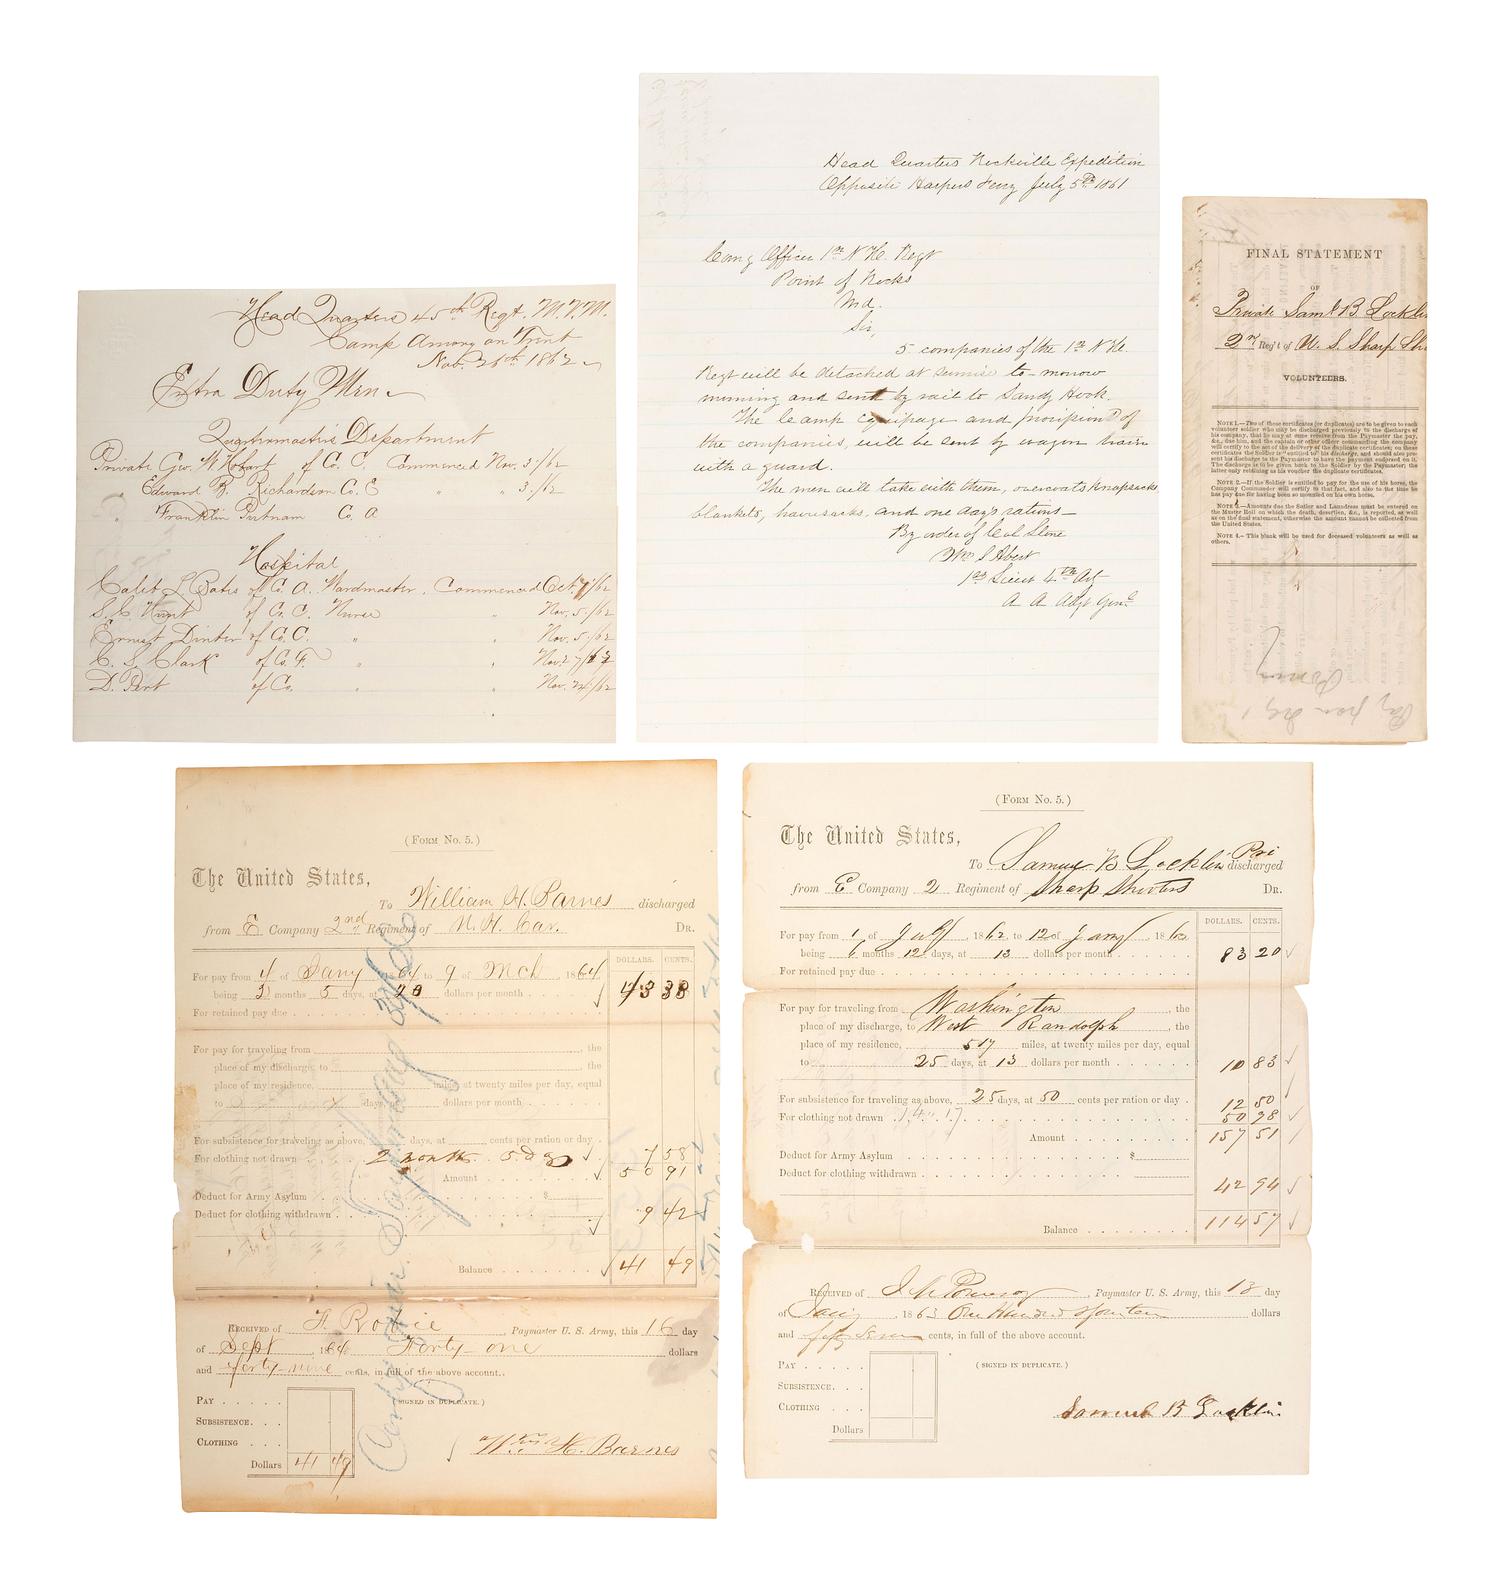 Head Quarters 45th Regt. M.V.M.
Camp Amory on Trent
Nov. 26th 1862
Extra Duty Men
Quartermaster's Department
Private Geo. W. Hobart of Co. C. Commenced Nov. 3/62
" Edward B. Richardson Co. E " " 3/62
" Franklin Putnam Co. A
Hospital
Caleb L. Bates of Co. A. Wardmaster, Commenced Oct. 7/62
S. C. Hunt of Co. C. Nurse " Nov. 5/62
Ernest Dinter of Co. C. " " Nov. 5/62
C. S. Clark of Co. F. " " Nov. 27/62
D. Pert of Co. " " Nov. 24/62
Head Quarters Rockville Expedition
Opposite Harpers Ferry July 5th 1861
Comg Officer 1st N. H. Regt
Point of Rocks
Md.
Sir,
5 companies of the 1st N. H.
Regt will be detached at sunrise to-morrow
morning and sent by rail to Sandy Hook.
The Camp equipage and provisions of
the companies, will be sent by wagon train
with a guard.
The men will take with them, overcoats knapsacks,
blankets, haversacks, and one days rations—
By order of Col Stone
Wm S Abert
1st Lieut 4th Arty
A A Adjt Genl
FINAL STATEMENT
OF
Private Saml B Locklin
2nd Reg't of U. S. Sharp Sho
VOLUNTEERS.
NOTE 1.—Two of these certificates (or duplicates) are to be given to each
volunteer soldier who may be discharged previously to the discharge of
his company, that he may at once receive from the Paymaster the pay,
&c., due him, and the captain or other officer commanding the company
will certify to the act of the delivery of the duplicate certificates; on these
certificates the Soldier is entitled to his discharge, and should also pre-
sent his discharge to the Paymaster to have the payment endorsed on it.
The discharge is to be given back to the Soldier by the Paymaster; the
latter only retaining as his voucher the duplicate certificates.
NOTE 2.—If the Soldier is entitled to pay for the use of his horse, the
Company Commander will certify to that fact, and also to the time he
has pay due for having been so mounted on his own horse.
NOTE 3.—Amounts due the Sutler and Laundress must be entered on
the Muster Roll on which the death, desertion, &c., is reported, as well
as on the final statement, otherwise the amount cannot be collected from
the United States.
NOTE 4.—This blank will be used for deceased volunteers as well as
others.
(FORM No. 5.)
The United States,
To William H. Barnes discharged
from E Company 2nd Regiment of N. H. Cav. DR.
DOLLARS. CENTS.
For pay from 4 of Jany 64 to 9 of Mch 1864
being 2 months 5 days, at 20 dollars per month 43 33
For retained pay due
For pay for traveling from , the
place of my discharge, to the
place of my residence, miles, at twenty miles per day, equal
to days, at dollars per month
For subsistence for traveling as above, days, at cents per ration or day
For clothing not drawn 2 months 5 dys 7 58
Amount 50 91
Deduct for Army Asylum $
Deduct for clothing withdrawn 9 42
Balance 41 49
RECEIVED of F. Robie, Paymaster U. S. Army, this 16 day
of Sept 1864 Forty-one dollars
and forty-nine cents, in full of the above account.
PAY
(SIGNED IN DUPLICATE.)
SUBSISTENCE
CLOTHING
Dollars 41 49
Wm H. Barnes
(FORM No. 5.)
The United States,
To Samuel B Locklin Pri discharged
from E Company 2 Regiment of Sharp Shooters DR.
DOLLARS. CENTS.
For pay from 1 of July, 1862 to 12 of Jany 1863
being 6 months 12 days, at 13 dollars per month 83 20
For retained pay due
For pay for traveling from Washington, the
place of my discharge, to West Randolph, the
place of my residence, 517 miles, at twenty miles per day, equal
to 25 days, at 13 dollars per month 10 83
For subsistence for traveling as above, 25 days, at 50 cents per ration or day 12 50
For clothing not drawn 14.17 50 98
Amount 157 51
Deduct for Army Asylum $
Deduct for clothing withdrawn 42 94
Balance 114 57
RECEIVED of J N Pomeroy, Paymaster U. S. Army, this 13 day
of Jany 1863 One Hundred fourteen dollars
and fifty seven cents, in full of the above account.
PAY
(SIGNED IN DUPLICATE.)
SUBSISTENCE
CLOTHING
Dollars
Samuel B Locklin